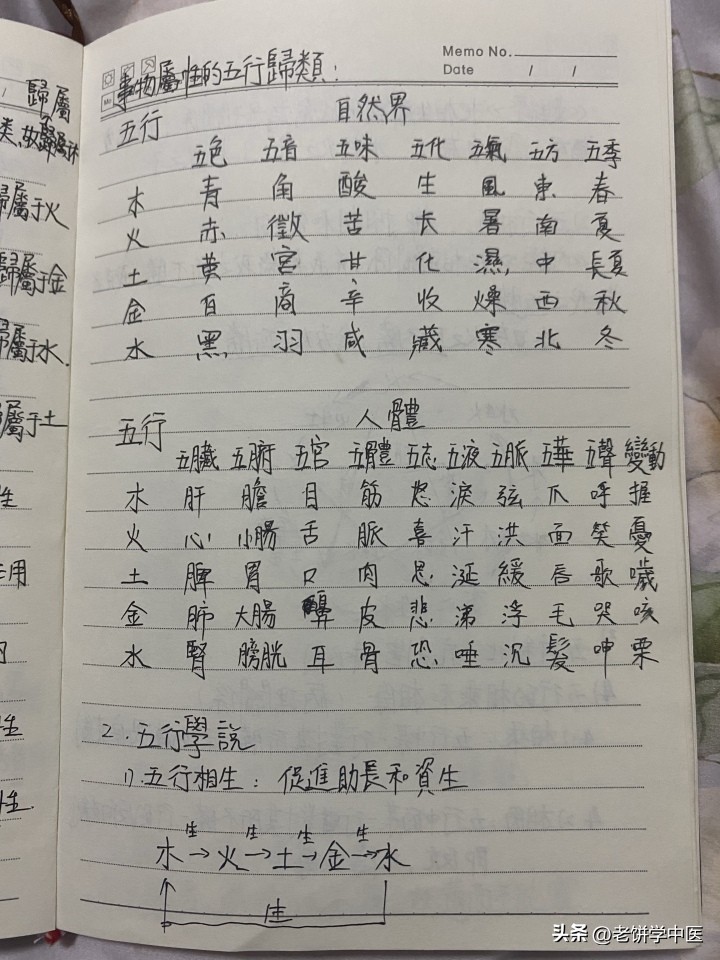 歸屬
類,故歸屬木
歸屬于火
歸屬于金
歸屬于水.
屬于土
性
用
性
性.
Memo No.
Date / /
事物屬性的五行歸類:
五行 自然界
五色 五音 五味 五化 五氣 五方 五季
木 青 角 酸 生 風 東 春
火 赤 徵 苦 长 暑 南 夏
土 黄 宮 甘 化 濕 中 長夏
金 白 商 辛 收 燥 西 秋
水 黑 羽 咸 藏 寒 北 冬
五行 人體
五臟 五腑 五官 五體 五志 五液 五脈 五華 五聲 變動
木 肝 膽 目 筋 怒 淚 弦 爪 呼 握
火 心 小腸 舌 脈 喜 汗 洪 面 笑 憂
土 脾 胃 口 肉 思 涎 緩 唇 歌 噦
金 肺 大腸 鼻 皮 悲 涕 浮 毛 哭 咳
水 腎 膀胱 耳 骨 恐 唾 沉 髮 呻 栗
2.五行學說
1).五行相生: 促進助長和資生
生 生 生 生
木→火→土→金→水
生
头条 @老饼学中医